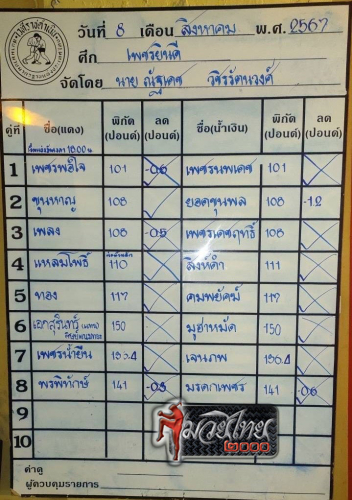 วันที่ 8 เดือน สิงหาคม พ.ศ. 2567
ศึก เพชรยินดี
จัดโดย นาย ณัฐเดช วชิรรัตนวงศ์
คู่ที่ ชื่อ(แดง) พิกัด (ปอนด์) ลด (ปอนด์) ชื่อ(น้ำเงิน) พิกัด (ปอนด์) ลด (ปอนด์)
1 เพชรพอใจ 101 -0.6 เพชรนพเดช 101
2 ขุนหาญ 108 ยอดขุนพล 108 -1.2
3 เพลง 108 -0.5 เพชรเดชฤทธิ์ 108
4 แหลมโพธิ์ 110 สิงห์ดำ 111
5 ทอง 117 คมพยัคฆ์ 117
6 เอกสุรินทร์ 150 มูฮาหมัด 150
7 เพชรน้ำยืน เจนภพ
8 พรพิทักษ์ 141 -0.5 มรดกเพชร 141 -0.6
9
10
ค่าดู
ผู้ควบคุมรายการ
มวยไทย
2000